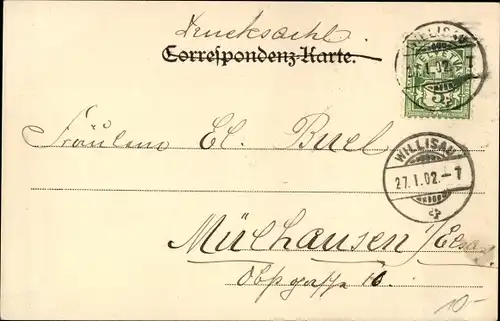 Drucksache.
Correspondenz-Karte.
WILLISAU
1.02.
HELVETIA
5
Fräulein El. Buel
WILLISAU
27.I.02.-7
Mülhausen /Elsa
10.
10-